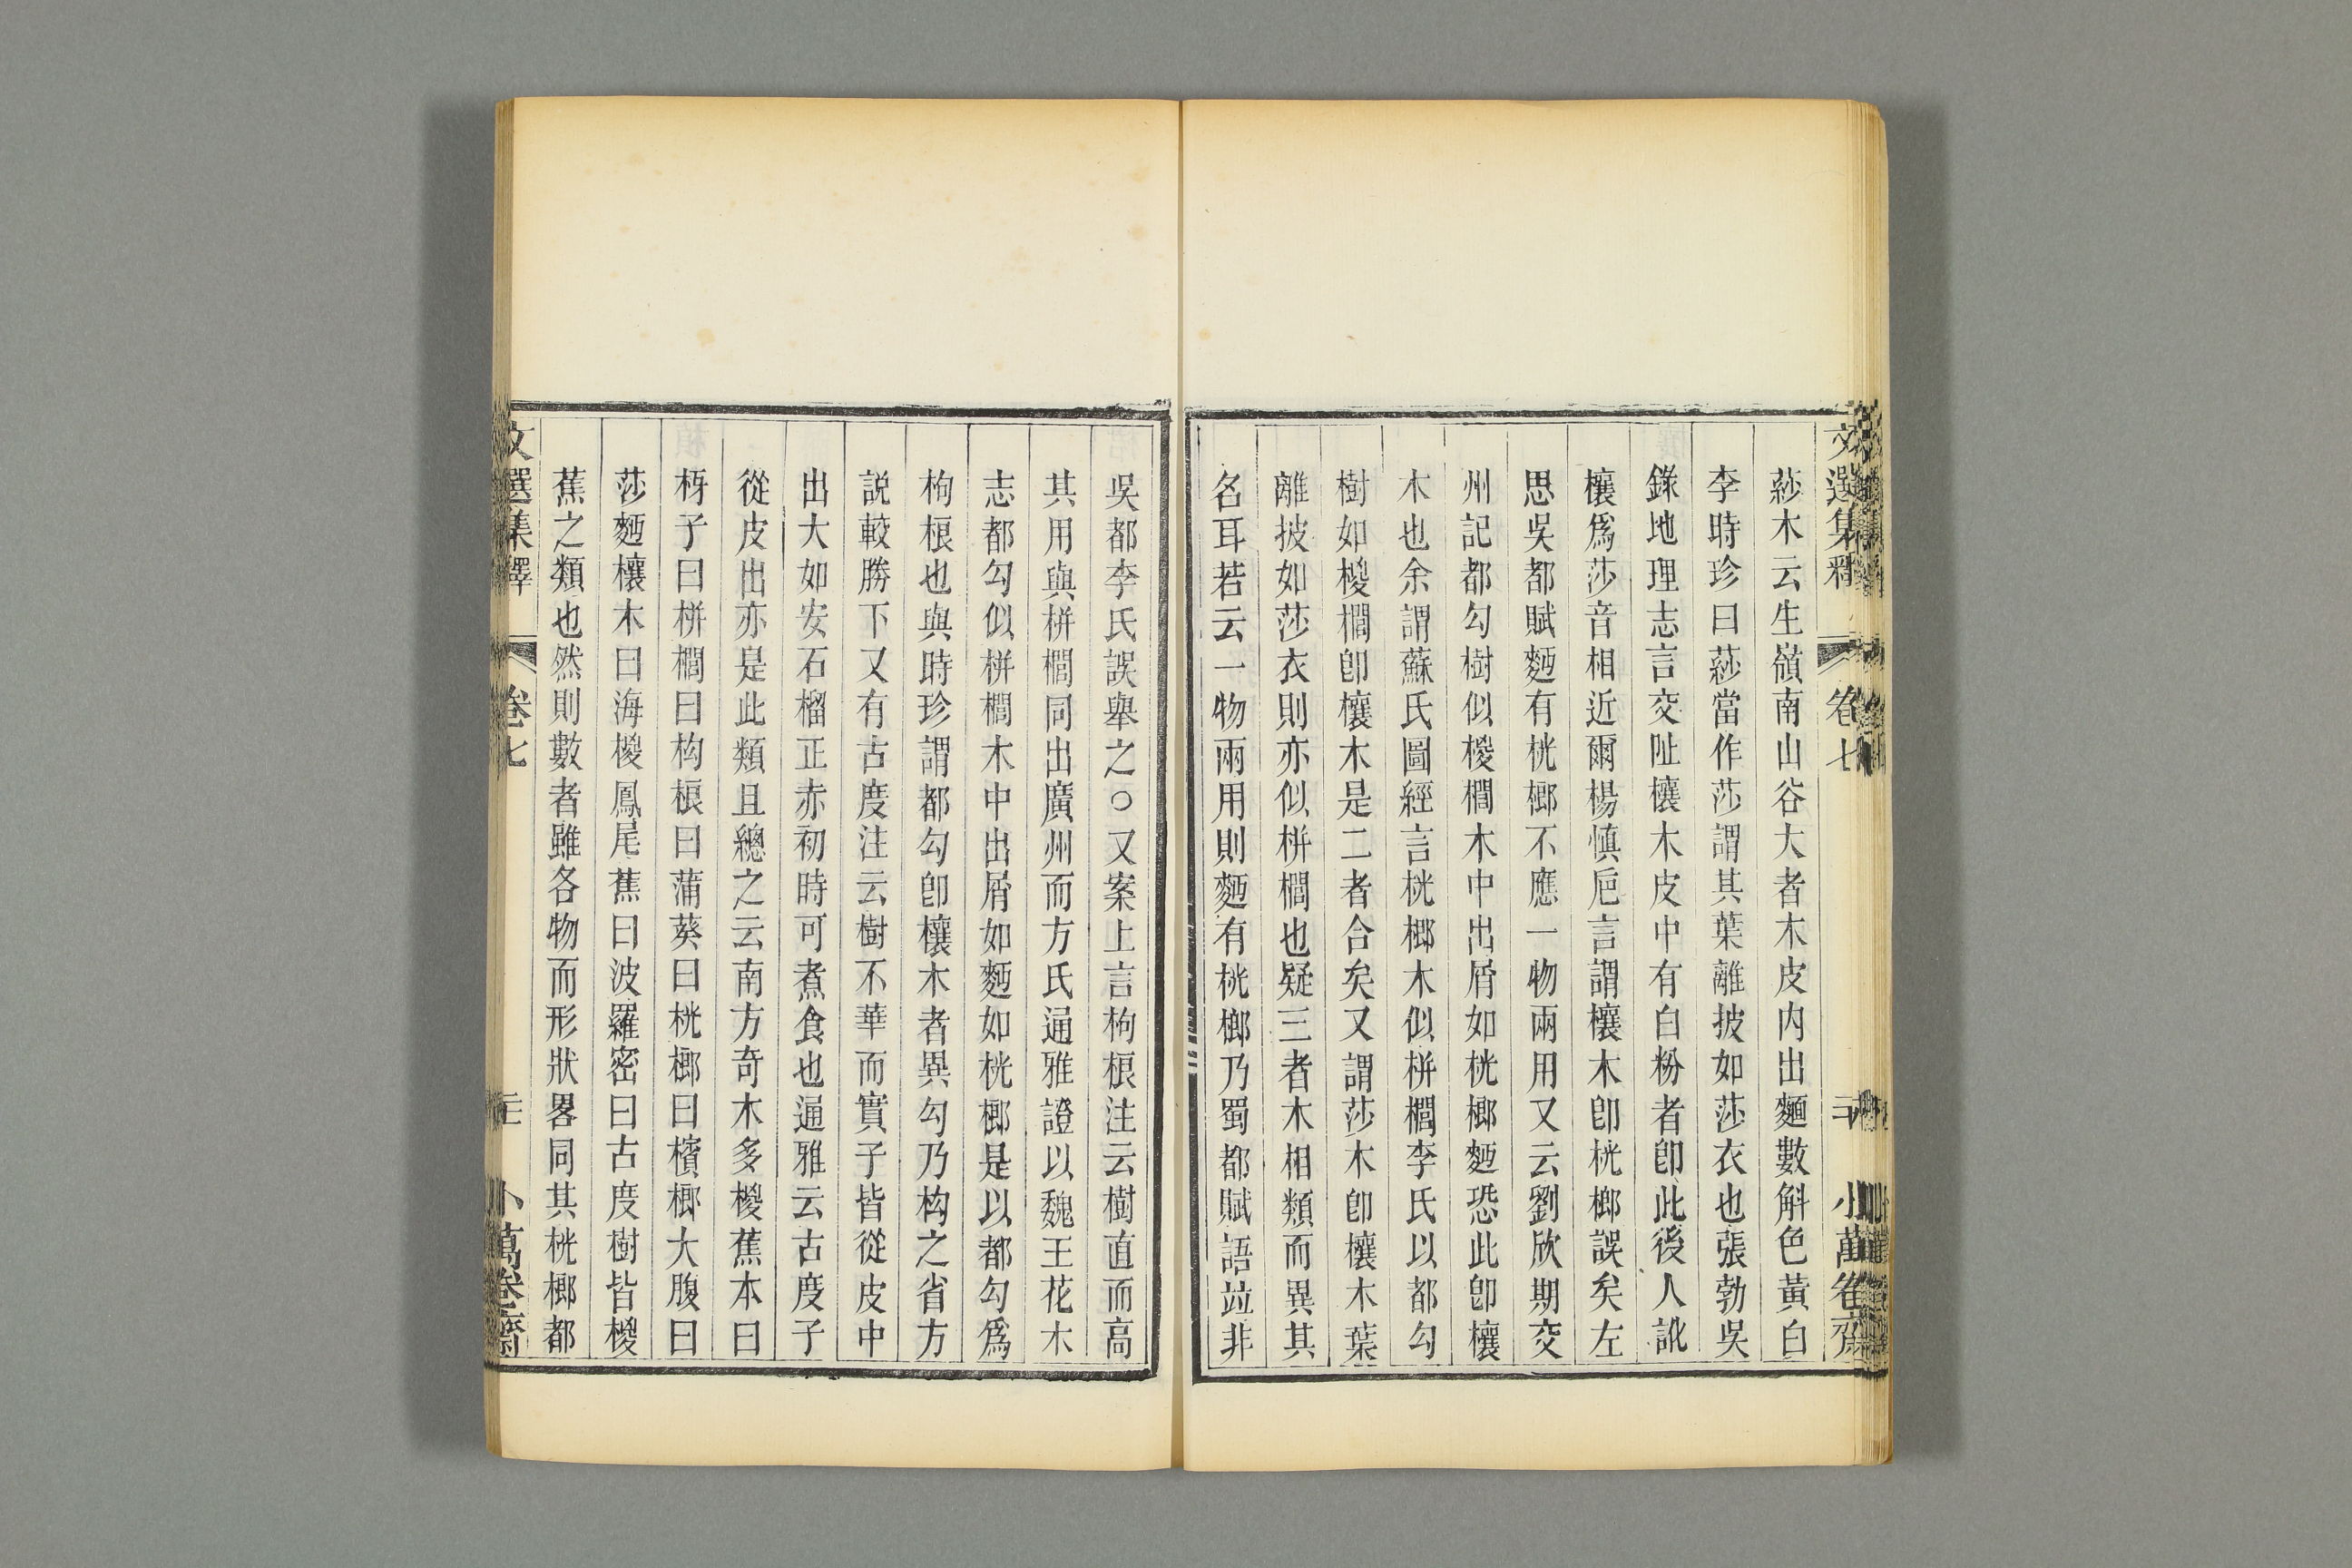 文選集釋 卷七 小萬卷齋
䓾木云生嶺南山谷大者木皮内出麵數斛色黃白
李時珍曰䓾當作莎謂其葉離披如莎衣也張勃吳
錄地理志言交阯欀木皮中有白粉者卽此後人訛
欀爲莎音相近爾楊愼巵言謂欀木卽桄榔誤矣左
思吳都賦麪有桄榔不應一物兩用又云劉欣期交
州記都勾樹似椶櫚木中出屑如桄榔麪恐此卽欀
木也余謂蘇氏圖經言桄榔木似栟櫚李氏以都勾
樹如椶櫚卽欀木是二者合矣又謂莎木卽欀木葉
離披如莎衣則亦似栟櫚也疑三者木相類而異其
名耳若云一物兩用則麪有桄榔乃蜀都賦語竝非
吳都李氏誤舉之○又案上言枸桹注云樹直而高
其用與栟櫚同出廣州而方氏通雅證以魏王花木
志都勾似栟櫚木中出屑如麪如桄榔是以都勾爲
枸桹也與時珍謂都勾卽欀木者異勾乃构之省方
説較勝下又有古度注云樹不華而實子皆從皮中
出大如安石榴正赤初時可煮食也通雅云古度子
從皮出亦是此類且總之云南方奇木多椶蕉本曰
枒子曰栟櫚曰构桹曰蒲葵曰桄榔曰檳榔大腹曰
莎麪欀木曰海椶鳳尾蕉曰波羅密曰古度樹皆椶
蕉之類也然則數者雖各物而形狀畧同其桄榔都
文選集釋 卷七 小萬卷齋